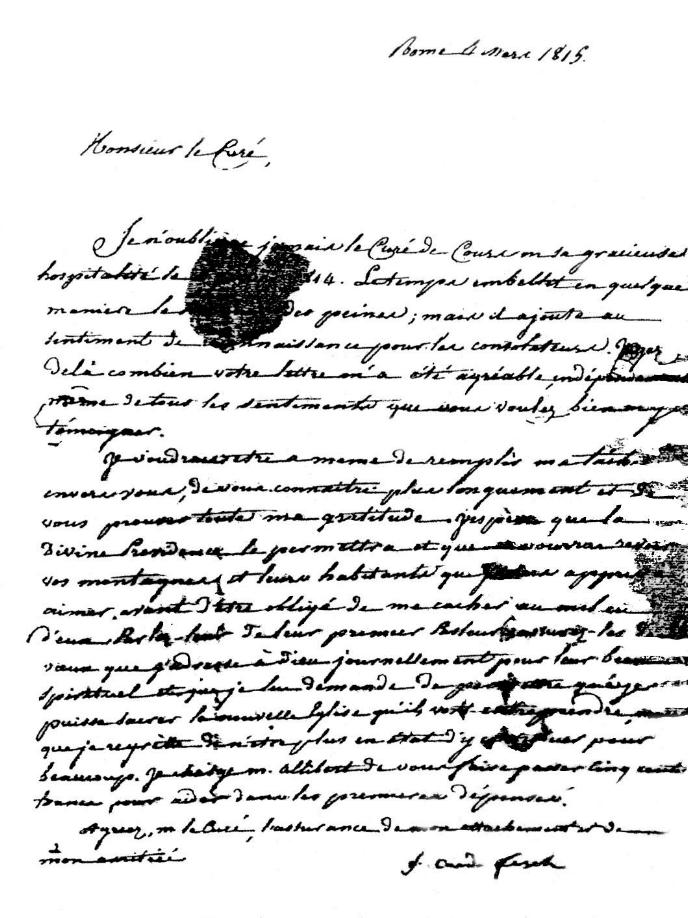 Rome 4 Mars 1815.
Monsieur le Curé,
Je n'oublierai jamais le Curé de Cours ni sa gracieuse
hospitalité le 1814. Le temps embellit en quelque
maniere les des peines; mais il ajoute au
sentiment de reconnaissance pour les consolateurs. Jugez
delà combien votre lettre m'a été agréable, indépendamment
même de tous les sentiments que vous voulez bien my
témoigner.
Je voudrais etre a meme de remplir ma tâche
envers vous, de vous connaître plus longuement et de
vous prouver toute ma gratitude. J'espère que la
Divine Providence le permettra et que revoir
vos montagnes et leurs habitants que appris
aimer, avant d'être obligé de me cacher au milieu
d'eux. Parlez-leur de leur premier Pasteur, assurez-les des
vœux que j'adresse à Dieu journellement pour leur bien
spirituel et que je lui demande de que je
puisse sacrer la nouvelle Eglise qu'ils vont entreprendre,
que je regrette de n'être plus en état d'y contribuer pour
beaucoup. Je charge m. Allibert de vous faire passer cinq cents
francs pour aider dans les premieres dépenses.
Agréez, m. le Curé, l'assurance de mon attachement et de
mon amitié
J. Card. Fesch